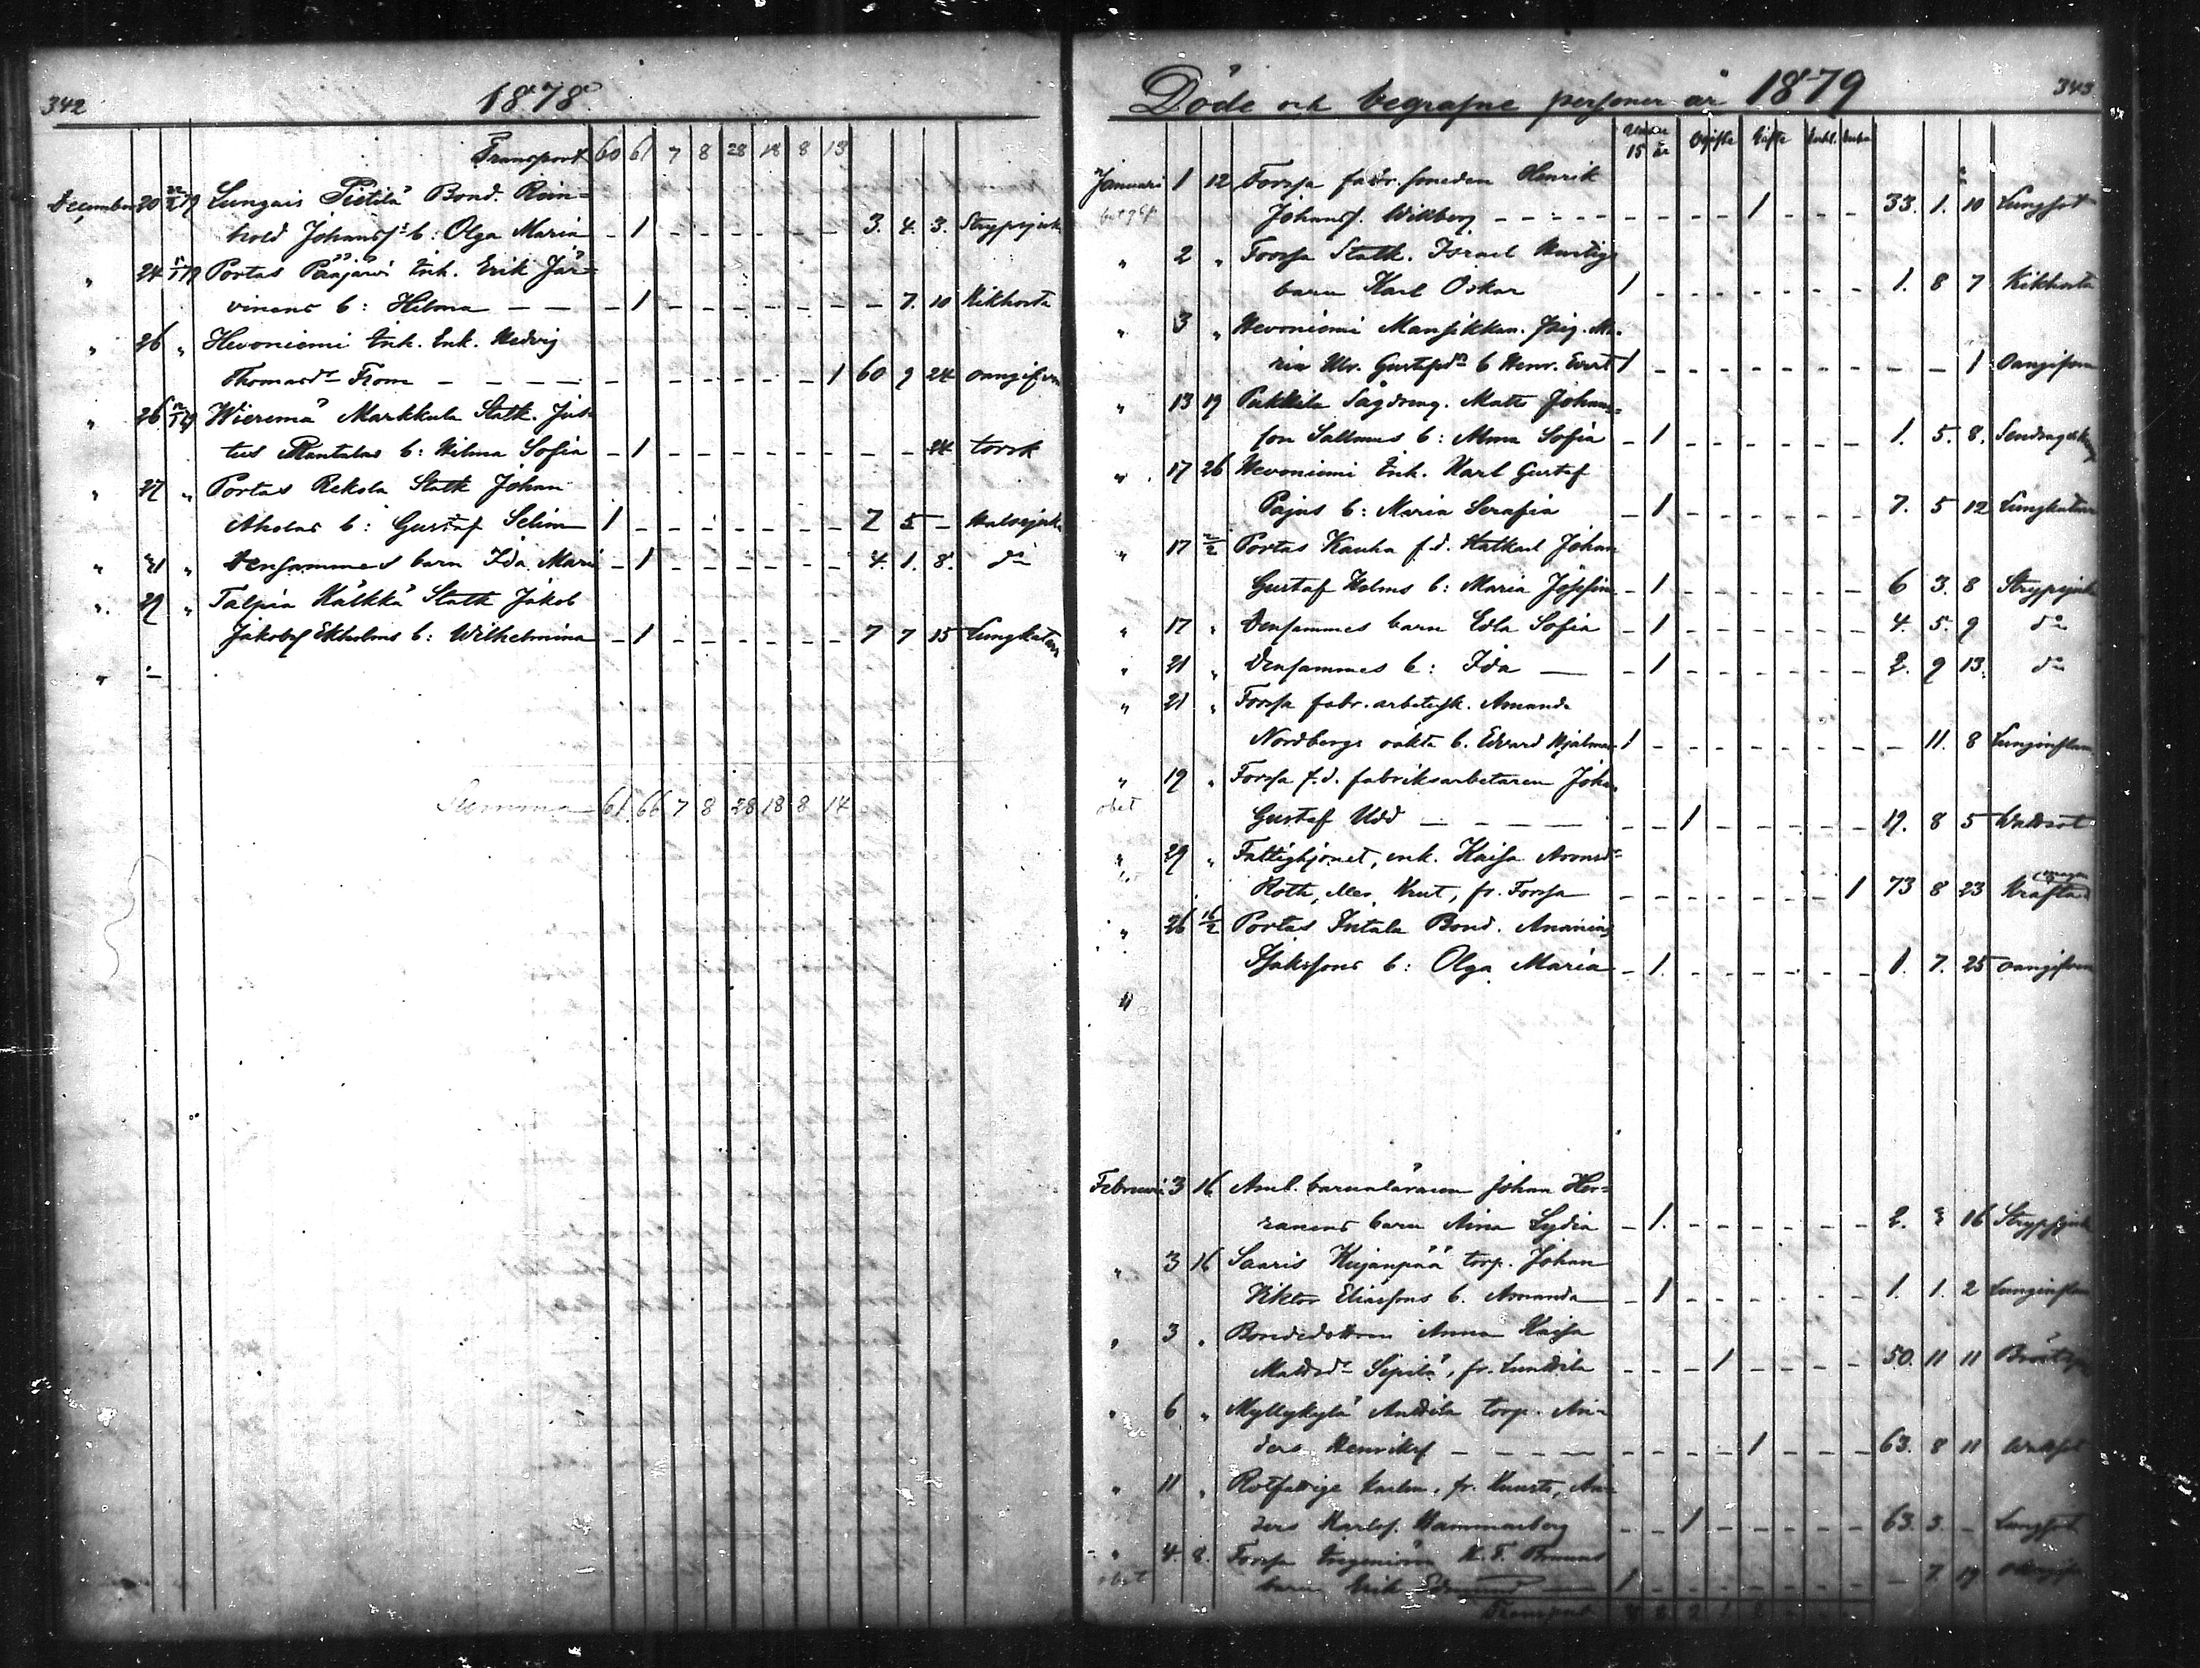 342
1878
Transport 60 61 7 8 28 18 8 13
December 20 Lungais Pietilä Bond. Rein-
hold Johansss b: Olga Maria - 1 - - - - - - 3. 4. 3. Strypsjuk
" 24 Portas Pääjärvi Inh. Erik Jär-
vinens b: Hilma - - - 1 - - - - - - - 7. 10 Kikhosta
" 26 " Hevoniemi Inh. Enk. Hedvig
Thomasdr From - - - - - - - 1 60 9 24 oangifven
" 26 Wieremä Markkula Statk. Jus-
tus Rantalas b: Hilma Sofia - 1 - - - - - - - - 24 torsk
" 27 " Portas Rekola Statk Johan
Aholas b: Gustaf Selim 1 - - - - - - - 7 5 - Halssjuka
" 21 " Densammes barn Ida Maria - 1 - - - - - - 4. 1. 8. do
" 29 " Talpia Kälkkä Statk Jakob
Jakobss Ekholms b: Wilhelmina - 1 - - - - - - 7 7 15 Lungkatarr
" -
Summa 61 66 7 8 28 18 8 14
343
Döde och begrafne personer år 1879
15 år Ogifte Gifte
Januari 1 12 Forssa fabr. smeden Henrik
Johanss. Wikberg - - - - - - 1 - - - 33. 1. 10 Lungsot
" 2 " Forssa Statk. Israel Hurtigs
barn Karl Oskar 1 - - - - - - - 1. 8 7 Kikhosta
" 3 " Hevoniemi Mansikkam. Pig. Ma-
ria Ulr. Gustafsdr b Henr. Evert 1 - - - - - - - - - 1 Oangifven
" 13 19 Pukkila Sågdreng. Matts Johans-
son Sallmus b: Alma Sofia - 1 - - - - - - 1. 5. 8.
" 17 26 Hevoniemi Inh. Karl Gustaf
Pajus b: Maria Serafia - 1 - - - - - - 7. 5 12 Lungkatarr
" 17 2/2 Portas Kauha f.d. Statkarl Johan
Gustaf Holms b: Maria Josefina - 1 - - - - - - 6 3. 8 Strypsjuka
" 17 " Densammes barn Edla Sofia - 1 - - - - - - 4. 5. 9 do
" 21 " Densammes b: Ida - 1 - - - - - - 2. 9 13. do
" 21 " Forssa fabr. arbetersk. Amanda
Nordbergs oäkta b. Edvard Hjalmar 1 - - - - - - - - 11. 8 Lunginflam.
" 19 " Forssa f.d. fabriksarbetaren Johan
obet Gustaf Udd - - - - - 1 - - - - - 19. 8 5 Wattsot
" 29 " Fattighjonet, enk. Kaisa
Roth, eller Krut, fr. Forssa - - - - - - - 1 73 8 23
" 26 16/2 Portas Intala Bond. Ananias
Isakssons b: Olga Maria - 1. - - - - - - 1. 7. 25 oangifven
"
Februari 3 16 Amb. barnaläraren Johan Her-
ranens barn Aina Lydia - 1. - - - - - - 2. 3 16 Strypsjuka
" 3 16 Saaris Kujanpää torp. Johan
Viktor Eliassons b. Amanda - 1 - - - - - - 1. 1. 2 Lunginflam
" 3 " Bondedottren Anna Kaisa
Mattsdr Sipilä, fr. Lunttila - - - 1 - - - - 50. 11 11
" 6 " Myllykylä Anttila torp. An-
ders Henriksf - - - - - - 1 - - - 63. 8 11 Wattsot
" 11 " Rotfattige karlen. fr. Kuusto, An-
ders Karlsf. Hammarberg - - 1 - - - - - 63. 3. - Lungsot
" 4. 8. Forssa Ingeniören K. F.
obet barn Erik Edmund 1 - - - - - - - - 7 19
Transport